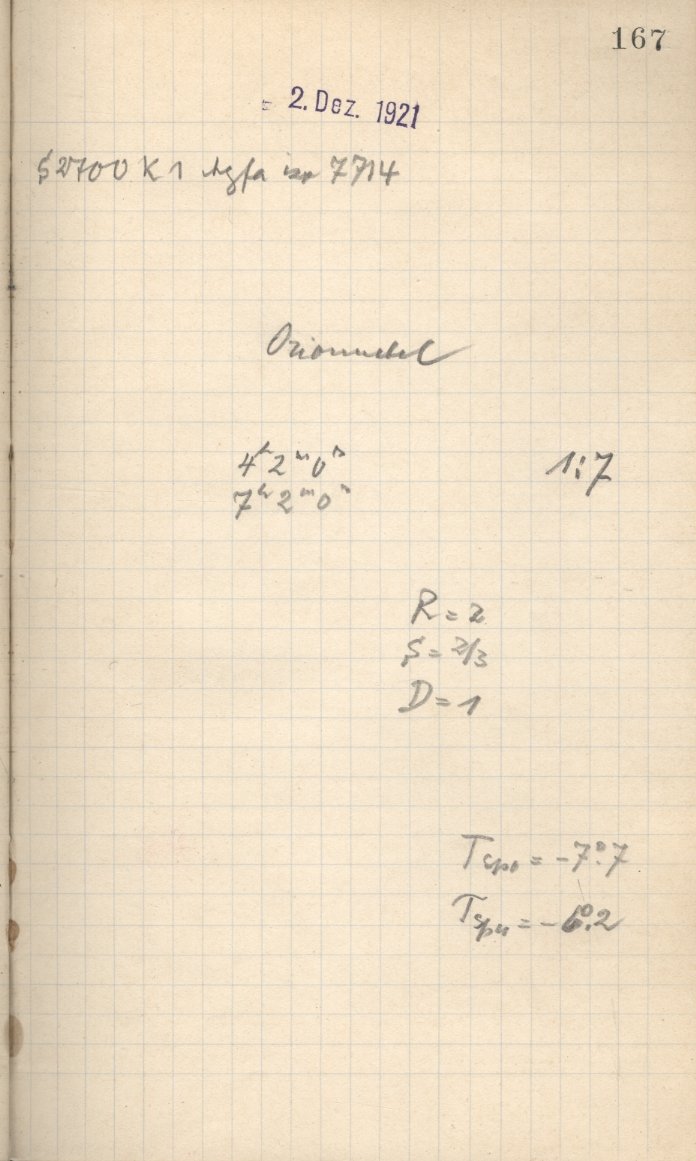 167
2. Dez. 1921
S 2700 K 1 Agfa iso 7714
Orionnebel
4h 2m 0s 1:7
7h 2m 0s
R = 2
S = 2/3
D = 1
T spo = -7°.7
T spu = -6°.2